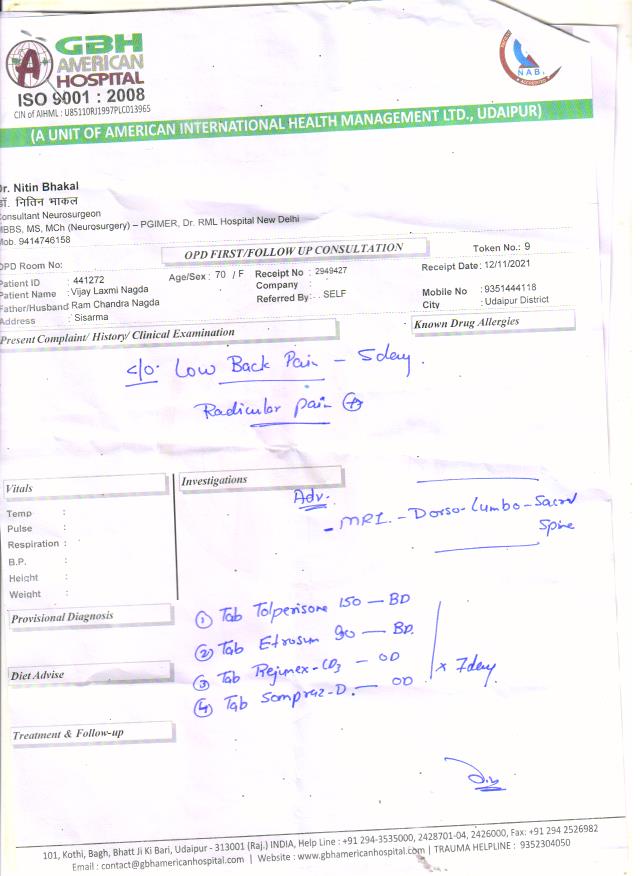 GBH
AMERICAN
HOSPITAL
ISO 9001 : 2008
CIN of AIHML : U85110RJ1997PLC013965
NAB
(A UNIT OF AMERICAN INTERNATIONAL HEALTH MANAGEMENT LTD., UDAIPUR)
Dr. Nitin Bhakal
डॉ. नितिन भाकल
Consultant Neurosurgeon
MBBS, MS, MCh (Neurosurgery) – PGIMER, Dr. RML Hospital New Delhi
Mob. 9414746158
OPD FIRST/FOLLOW UP CONSULTATION
Token No.: 9
OPD Room No:
Receipt Date: 12/11/2021
Patient ID : 441272 Age/Sex : 70 / F Receipt No : 2949427
Patient Name : Vijay Laxmi Nagda Company : Mobile No : 9351444118
Father/Husband Ram Chandra Nagda Referred By : SELF City : Udaipur District
Address : Sisarma
Present Complaint/ History/ Clinical Examination
Known Drug Allergies
c/o. Low Back Pain – 5day.
Radicular pain ⊕
Vitals
Investigations
Adv.
- MRI. - Dorso-Lumbo-Sacral
Spine
Temp :
Pulse :
Respiration :
B.P. :
Height :
Weight :
Provisional Diagnosis
① Tab Tolperisone 150 — BD
② Tab Etrosum 90 — BD.
③ Tab Rejunex-CD3 – OD
④ Tab Sompraz-D. — OD
x 7day.
Diet Advise
Treatment & Follow-up
101, Kothi, Bagh, Bhatt Ji Ki Bari, Udaipur - 313001 (Raj.) INDIA, Help Line : +91 294-3535000, 2428701-04, 2426000, Fax: +91 294 2526982
Email : contact@gbhamericanhospital.com | Website : www.gbhamericanhospital.com | TRAUMA HELPLINE : 9352304050